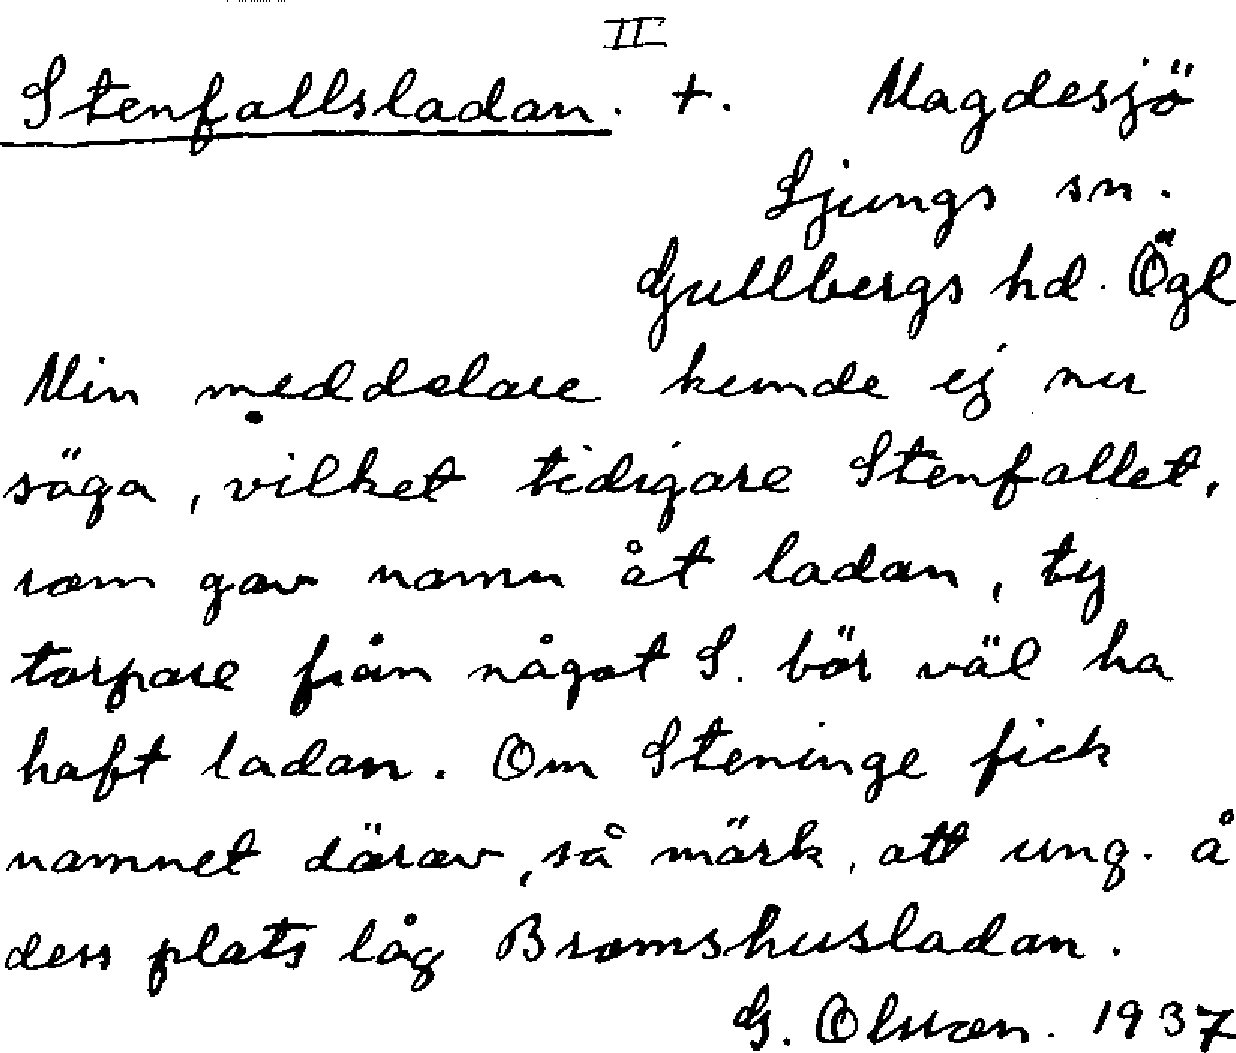 II
Stenfallsladan. +. Magdesjö
Ljungs sn.
Gullbergs hd. Ögl
Min meddelare kunde ej nu
säga, vilket tidigare Stenfallet,
som gav namn åt ladan, ty
torpare från något S. bör väl ha
haft ladan. Om Steninge fick
namnet därav, så märk, att ung. å
dess plats låg Bromshusladan.
G. Olsson. 1937